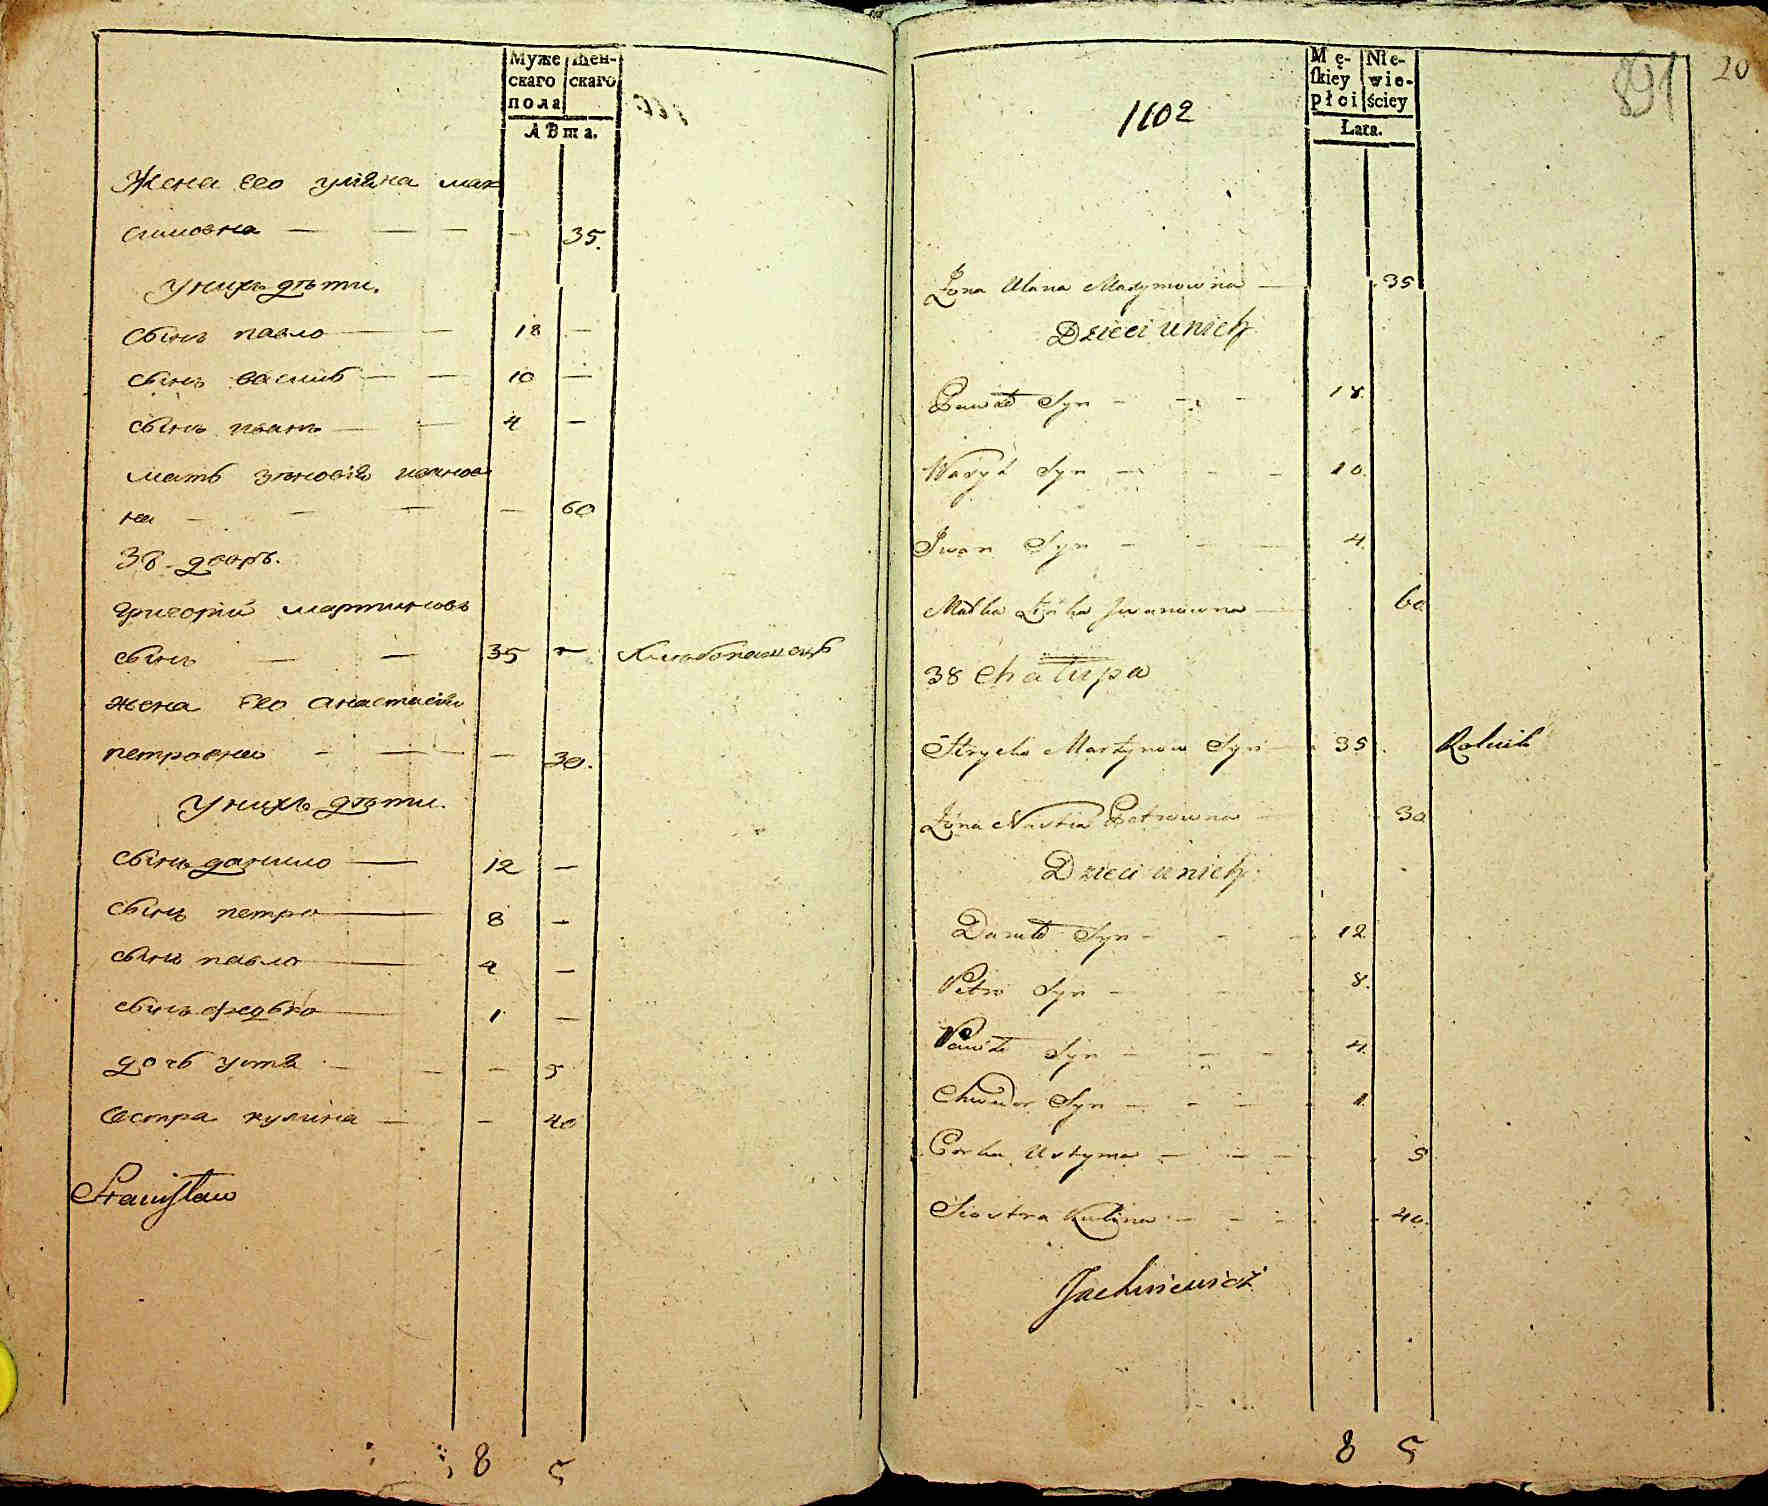 Муже
скаго
пола
Жен-
скаго
Лѣта.
Жена его уляна мак
симовна — — — — 35.
у нихъ дѣти.
сынъ павло — — 18 —
сынъ василь — — 10 —
сынъ иванъ — — 4 —
мать зѣновія иванов
на — — — — 60
38 дворъ.
григорій мартиновъ
сынъ — — 35 — хлѣбопашецъ
жена его анастасія
петровна — — — — 30.
у нихъ дѣти.
сынъ данило — 12 —
сынъ петро — 8 —
сынъ павло — 4 —
сынъ федько — 1 —
дочь устя — — — 5
сестра кулина — — 40
Stanisław
8 5
1102
Mę-
skiey
płci
Nie-
wie-
ściey
Lata.
891
20
Żona Ulana Maxymowna — 35
Dzieci unich
Pawło Syn — — — 18.
Wasyl Syn — — — 10.
Iwan Syn — — — 4.
Matka Zińka Iwanowna — 60
38 Chałupa
Hrycko Martynow Syn — 35. Rolnik
Żona Nastia Petrowna — 30
Dzieci unich
Daniło Syn — — — 12.
Petro Syn — — — 8.
Pawło Syn — — — 4.
Chwedor Syn — — — 1.
Corka Ustyma — — — 5
Siostra Kulina — — — 40.
Jachniewicz
8 5